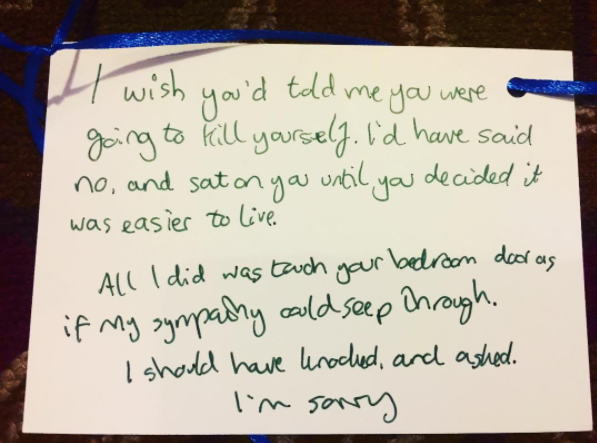 I wish you'd told me you were
going to kill yourself. I'd have said
no, and sat on you until you decided it
was easier to live.
All I did was touch your bedroom door as
if my sympathy could seep through.
I should have knocked, and asked.
I'm sorry